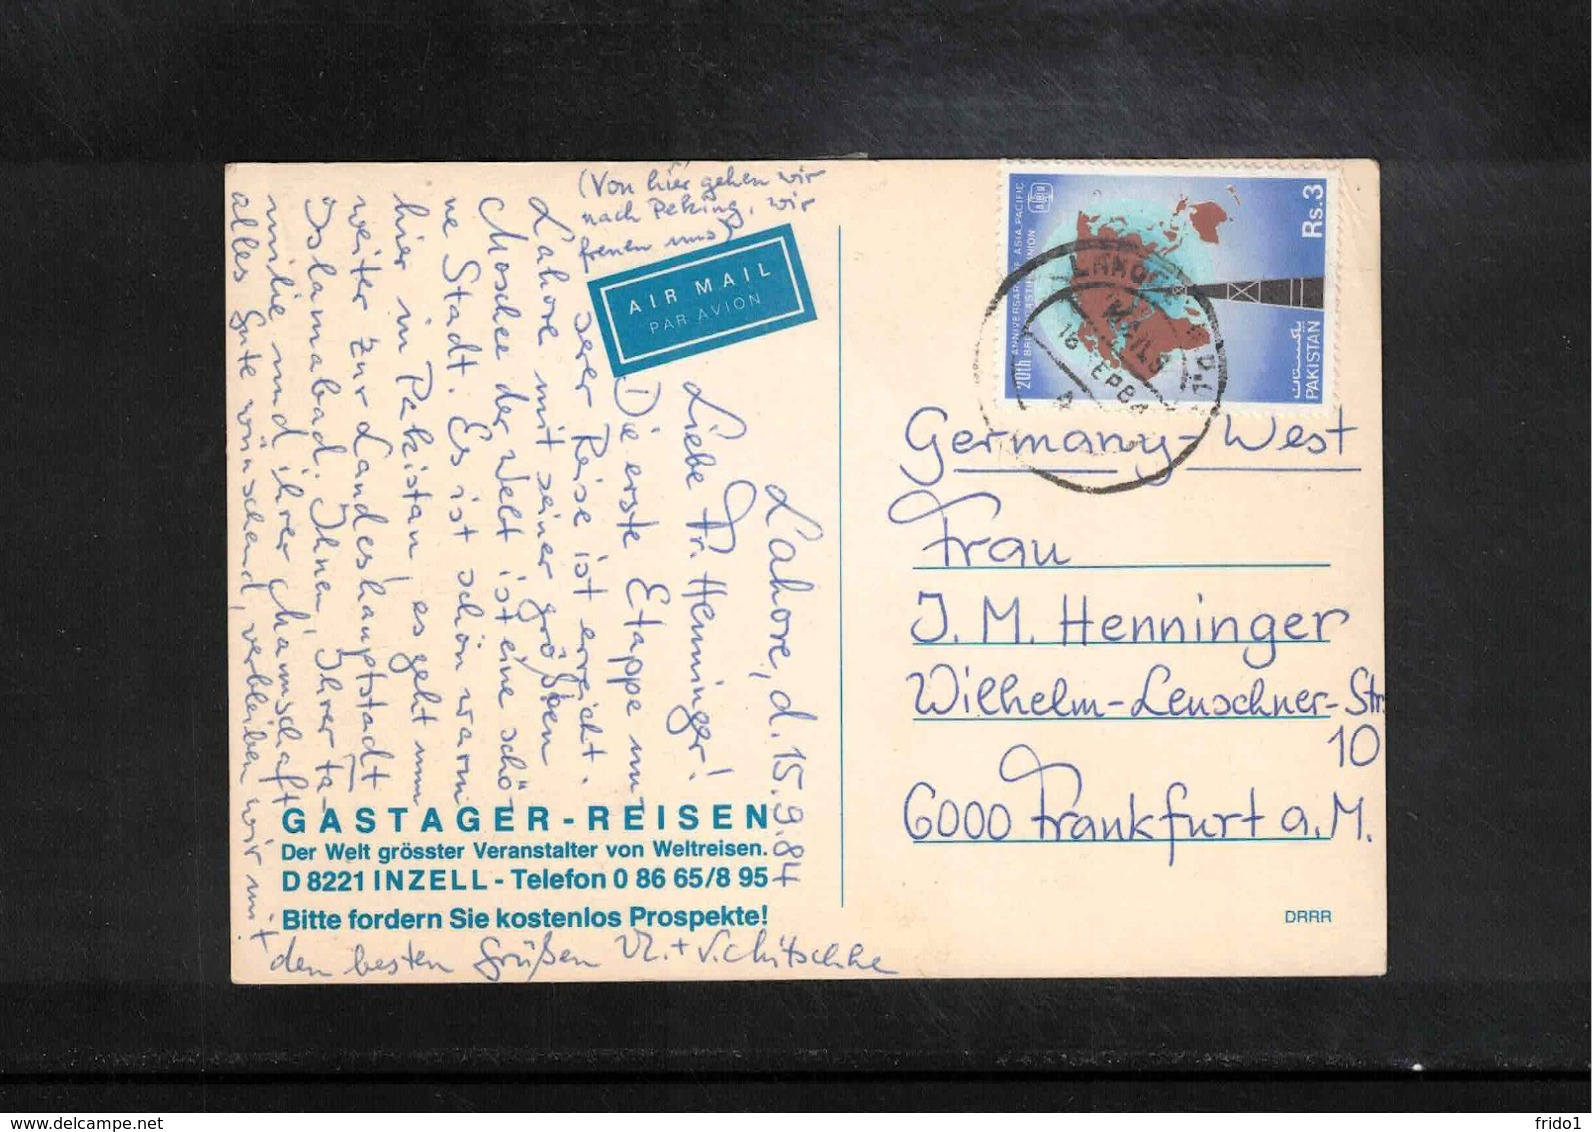 (Von hier gehen wir
nach Peking, wir
freuen uns)
AIR MAIL
PAR AVION
Lahore, d. 15.9.84
Liebe Fr. Henninger!
Die erste Etappe un-
serer Reise ist erreicht.
Lahore mit seiner größten
Moschee der Welt ist eine schö-
ne Stadt. Es ist schön warm
hier in Pakistan, es geht nun
weiter zur Landeshauptstadt
Islamabad. Ihnen, Ihrer Fa-
milie und ihrer Mannschaft
alles Gute wünschend, verbleiben wir mit
den besten Grüßen
GASTAGER-REISEN
Der Welt grösster Veranstalter von Weltreisen.
D 8221 INZELL - Telefon 0 86 65/8 95
Bitte fordern Sie kostenlos Prospekte!
20th ANNIVERSARY OF ASIA-PACIFIC
BROADCASTING UNION
ABU
Rs.3
پاکستان
PAKISTAN
LAHORE
16 SEP 84
Germany-West
Frau
J. M. Henninger
Wilhelm-Leuschner-Str.
10
6000 Frankfurt a.M.
DRRR
www.delcampe.net
frido1